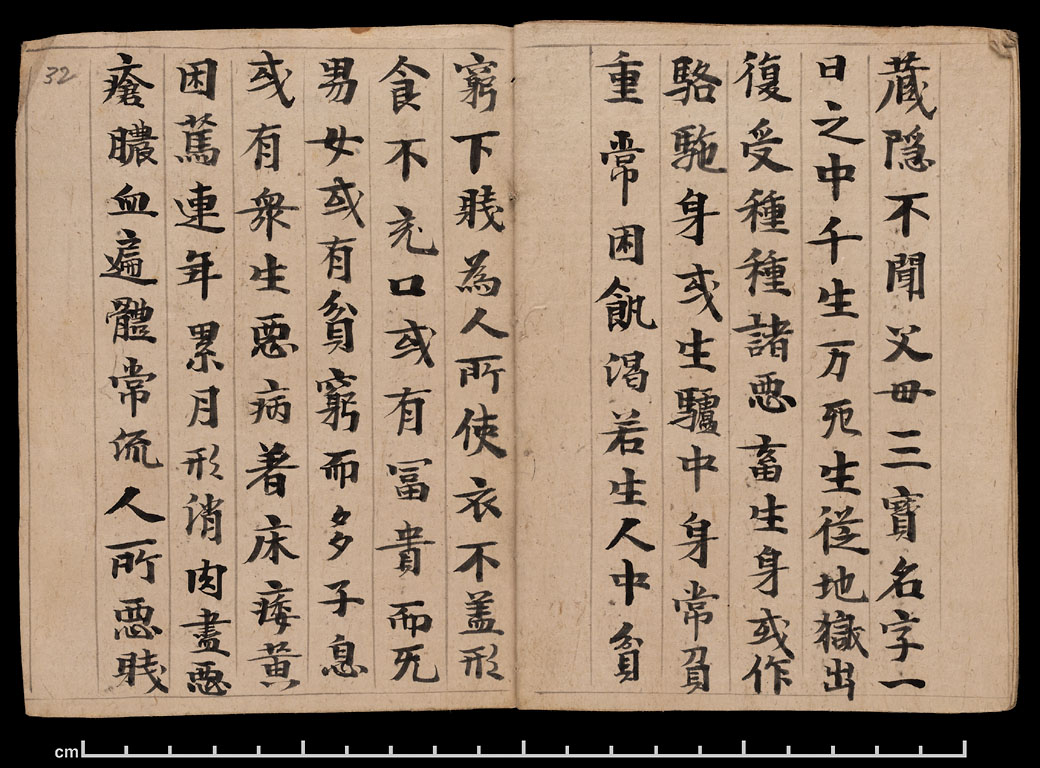 蔵隱不聞父母三寶名字一
日之中千生万死生從地獄出
復受種種諸惡畜生身或作
駱駞身或生驢中身常負
重常困飢渴若生人中貧
窮下賤為人所使衣不盖形
食不充口或有冨貴而无
男女或有貧窮而多子息
或有衆生惡病著床痿黃
困篤連年累月形消肉盡惡
瘡膿血遍體常流人所惡賤
32
cm